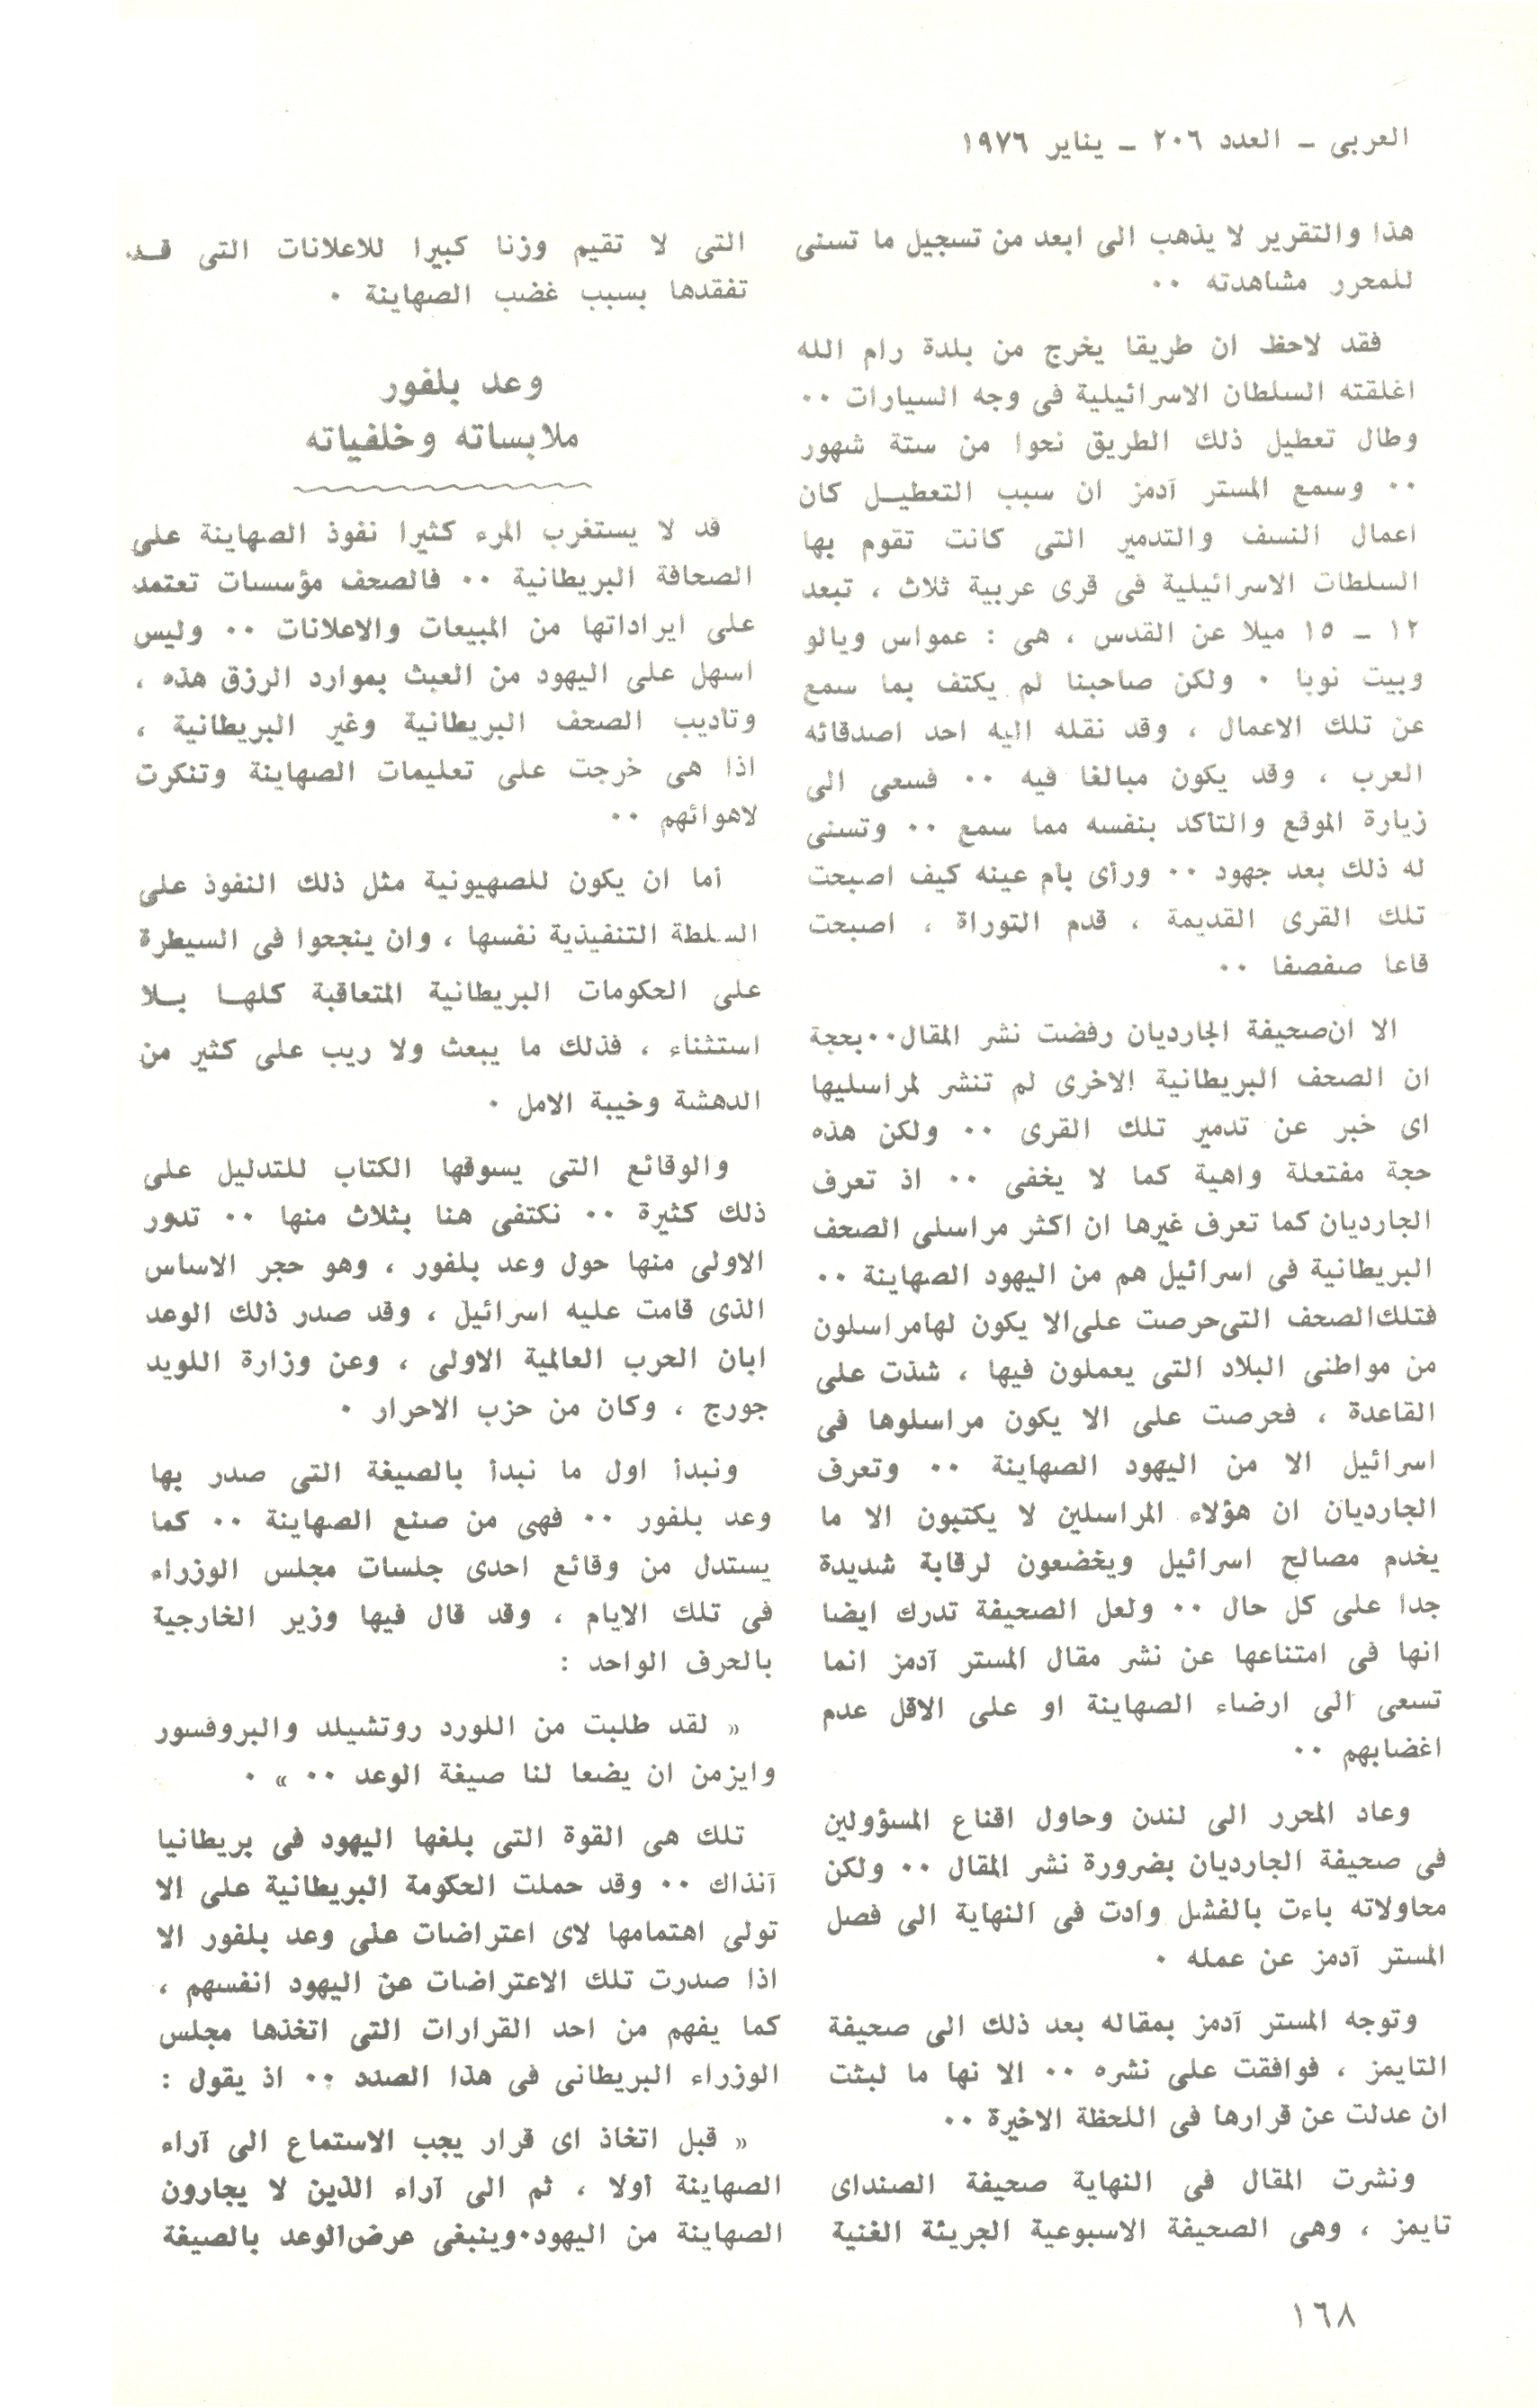 العربى – العدد ٢٠٦ – يناير ١٩٧٦
هذا والتقرير لا يذهب الى ابعد من تسجيل ما تسنى
للمحرر مشاهدته ٠٠
فقد لاحظ ان طريقا يخرج من بلدة رام الله
اغلقته السلطان الاسرائيلية فى وجه السيارات ٠٠
وطال تعطيل ذلك الطريق نحوا من ستة شهور
٠٠ وسمع المستر آدمز ان سبب التعطيل كان
اعمال النسف والتدمير التى كانت تقوم بها
السلطات الاسرائيلية فى قرى عربية ثلاث ، تبعد
١٢ – ١٥ ميلا عن القدس ، هى : عمواس ويالو
وبيت نوبا ٠ ولكن صاحبنا لم يكتف بما سمع
عن تلك الاعمال ، وقد نقله اليه احد اصدقائه
العرب ، وقد يكون مبالغا فيه ٠٠ فسعى الى
زيارة الموقع والتأكد بنفسه مما سمع ٠٠ وتسنى
له ذلك بعد جهود ٠٠ ورأى بأم عينه كيف اصبحت
تلك القرى القديمة ، قدم التوراة ، اصبحت
قاعا صفصفا ٠٠
الا ان صحيفة الجارديان رفضت نشر المقال ٠٠ بحجة
ان الصحف البريطانية الاخرى لم تنشر لمراسليها
اى خبر عن تدمير تلك القرى ٠٠ ولكن هذه
حجة مفتعلة واهية كما لا يخفى ٠٠ اذ تعرف
الجارديان كما تعرف غيرها ان اكثر مراسلى الصحف
البريطانية فى اسرائيل هم من اليهود الصهاينة ٠٠
فتلك الصحف التى حرصت على الا يكون لها مراسلون
من مواطنى البلاد التى يعملون فيها ، شذت على
القاعدة ، فحرصت على الا يكون مراسلوها فى
اسرائيل الا من اليهود الصهاينة ٠٠ وتعرف
الجارديان ان هؤلاء المراسلين لا يكتبون الا ما
يخدم مصالح اسرائيل ويخضعون لرقابة شديدة
جدا على كل حال ٠٠ ولعل الصحيفة تدرك ايضا
انها فى امتناعها عن نشر مقال المستر آدمز انما
تسعى الى ارضاء الصهاينة او على الاقل عدم
اغضابهم ٠٠
وعاد المحرر الى لندن وحاول اقناع المسؤولين
فى صحيفة الجارديان بضرورة نشر المقال ٠٠ ولكن
محاولاته باءت بالفشل وادت فى النهاية الى فصل
المستر آدمز عن عمله ٠
وتوجه المستر آدمز بمقاله بعد ذلك الى صحيفة
التايمز ، فوافقت على نشره ٠٠ الا نها ما لبثت
ان عدلت عن قرارها فى اللحظة الاخيرة ٠٠
ونشرت المقال فى النهاية صحيفة الصنداى
تايمز ، وهى الصحيفة الاسبوعية الجريئة الغنية
التى لا تقيم وزنا كبيرا للاعلانات التى قد
تفقدها بسبب غضب الصهاينة ٠
وعد بلفور
ملابساته وخلفياته
قد لا يستغرب المرء كثيرا نفوذ الصهاينة على
الصحافة البريطانية ٠٠ فالصحف مؤسسات تعتمد
على ايراداتها من المبيعات والاعلانات ٠٠ وليس
اسهل على اليهود من العبث بموارد الرزق هذه ،
وتأديب الصحف البريطانية وغير البريطانية ،
اذا هى خرجت على تعليمات الصهاينة وتنكرت
لاهوائهم ٠٠
أما ان يكون للصهيونية مثل ذلك النفوذ على
السلطة التنفيذية نفسها ، وان ينجحوا فى السيطرة
على الحكومات البريطانية المتعاقبة كلها بلا
استثناء ، فذلك ما يبعث ولا ريب على كثير من
الدهشة وخيبة الامل ٠
والوقائع التى يسوقها الكتاب للتدليل على
ذلك كثيرة ٠٠ نكتفى هنا بثلاث منها ٠٠ تدور
الاولى منها حول وعد بلفور ، وهو حجر الاساس
الذى قامت عليه اسرائيل ، وقد صدر ذلك الوعد
ابان الحرب العالمية الاولى ، وعن وزارة اللويد
جورج ، وكان من حزب الاحرار ٠
ونبدأ اول ما نبدأ بالصيغة التى صدر بها
وعد بلفور ٠٠ فهى من صنع الصهاينة ٠٠ كما
يستدل من وقائع احدى جلسات مجلس الوزراء
فى تلك الايام ، وقد قال فيها وزير الخارجية
بالحرف الواحد :
« لقد طلبت من اللورد روتشيلد والبروفسور
وايزمن ان يضعا لنا صيغة الوعد ٠٠ » ٠
تلك هى القوة التى بلغها اليهود فى بريطانيا
آنذاك ٠٠ وقد حملت الحكومة البريطانية على الا
تولى اهتمامها لاى اعتراضات على وعد بلفور الا
اذا صدرت تلك الاعتراضات عن اليهود انفسهم ،
كما يفهم من احد القرارات التى اتخذها مجلس
الوزراء البريطانى فى هذا الصدد ٠٠ اذ يقول :
« قبل اتخاذ اى قرار يجب الاستماع الى آراء
الصهاينة أولا ، ثم الى آراء الذين لا يجارون
الصهاينة من اليهود٠ وينبغى عرض الوعد بالصيغة
١٦٨